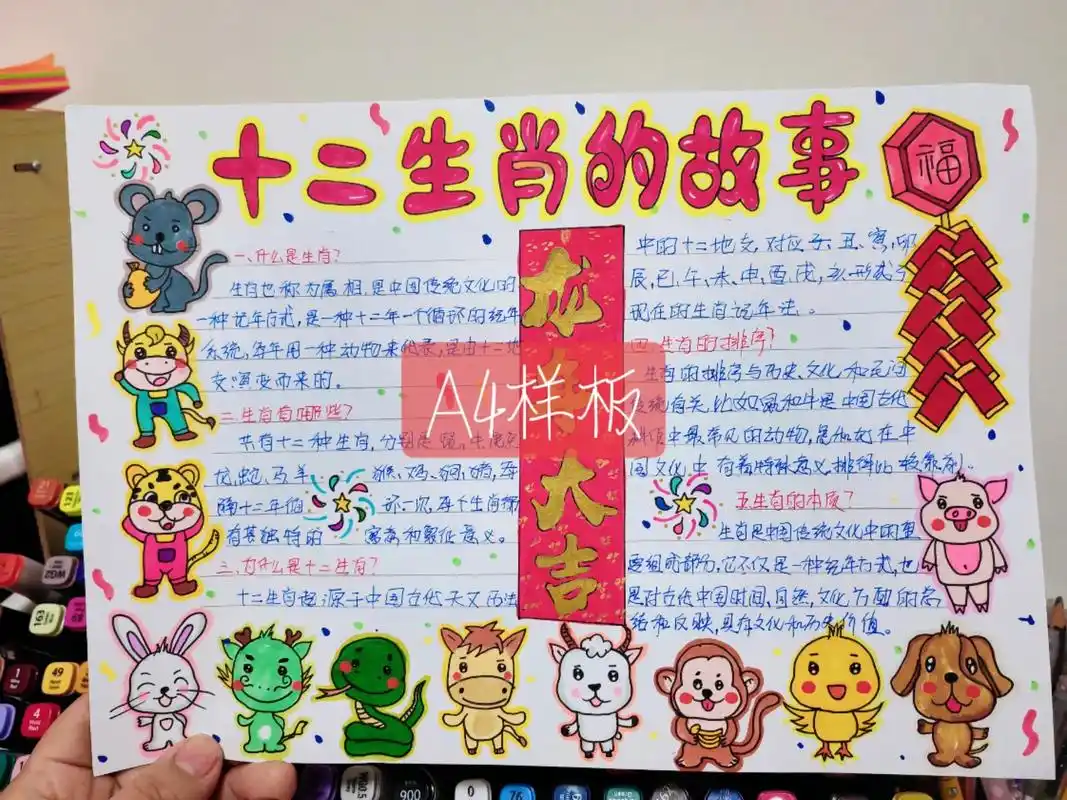 十二生肖的故事
福
一、什么是生肖?
生肖也称为属相,是中国传统文化中的
一种记年方式,是一种十二年一个循环的纪年
系统,每年用一种动物来代表,是由十二地
支演变而来的。
二生肖有哪些?
共有十二种生肖,分别是鼠,牛,虎
龙,蛇,马,羊 猴、鸡、狗、猪,每
隔十二年循 环一次,每个生肖都
有其独特的 寓意和象征意义。
三、为什么是十二生肖?
十二生肖起源于中国古代天文历法
龙年大吉
A4样板
中的十二地支,对应子、丑、寅,卯
辰,巳,午、未、申,酉,戌,亥,形成了
现在的生肖记年法。
四 生肖的排序?
生肖的排序与历史、文化和民间
传统有关,比如鼠和牛是中国古代
中最常见的动物,虎和龙在中
国文化中有着特殊意义,排得比较靠前。
五生肖的本质?
生肖是中国传统文化中的重
要组成部分,它不仅是一种纪年方式,也
是对古代中国时间、自然,文化方面的总
结和反映,具有文化和历史价值。